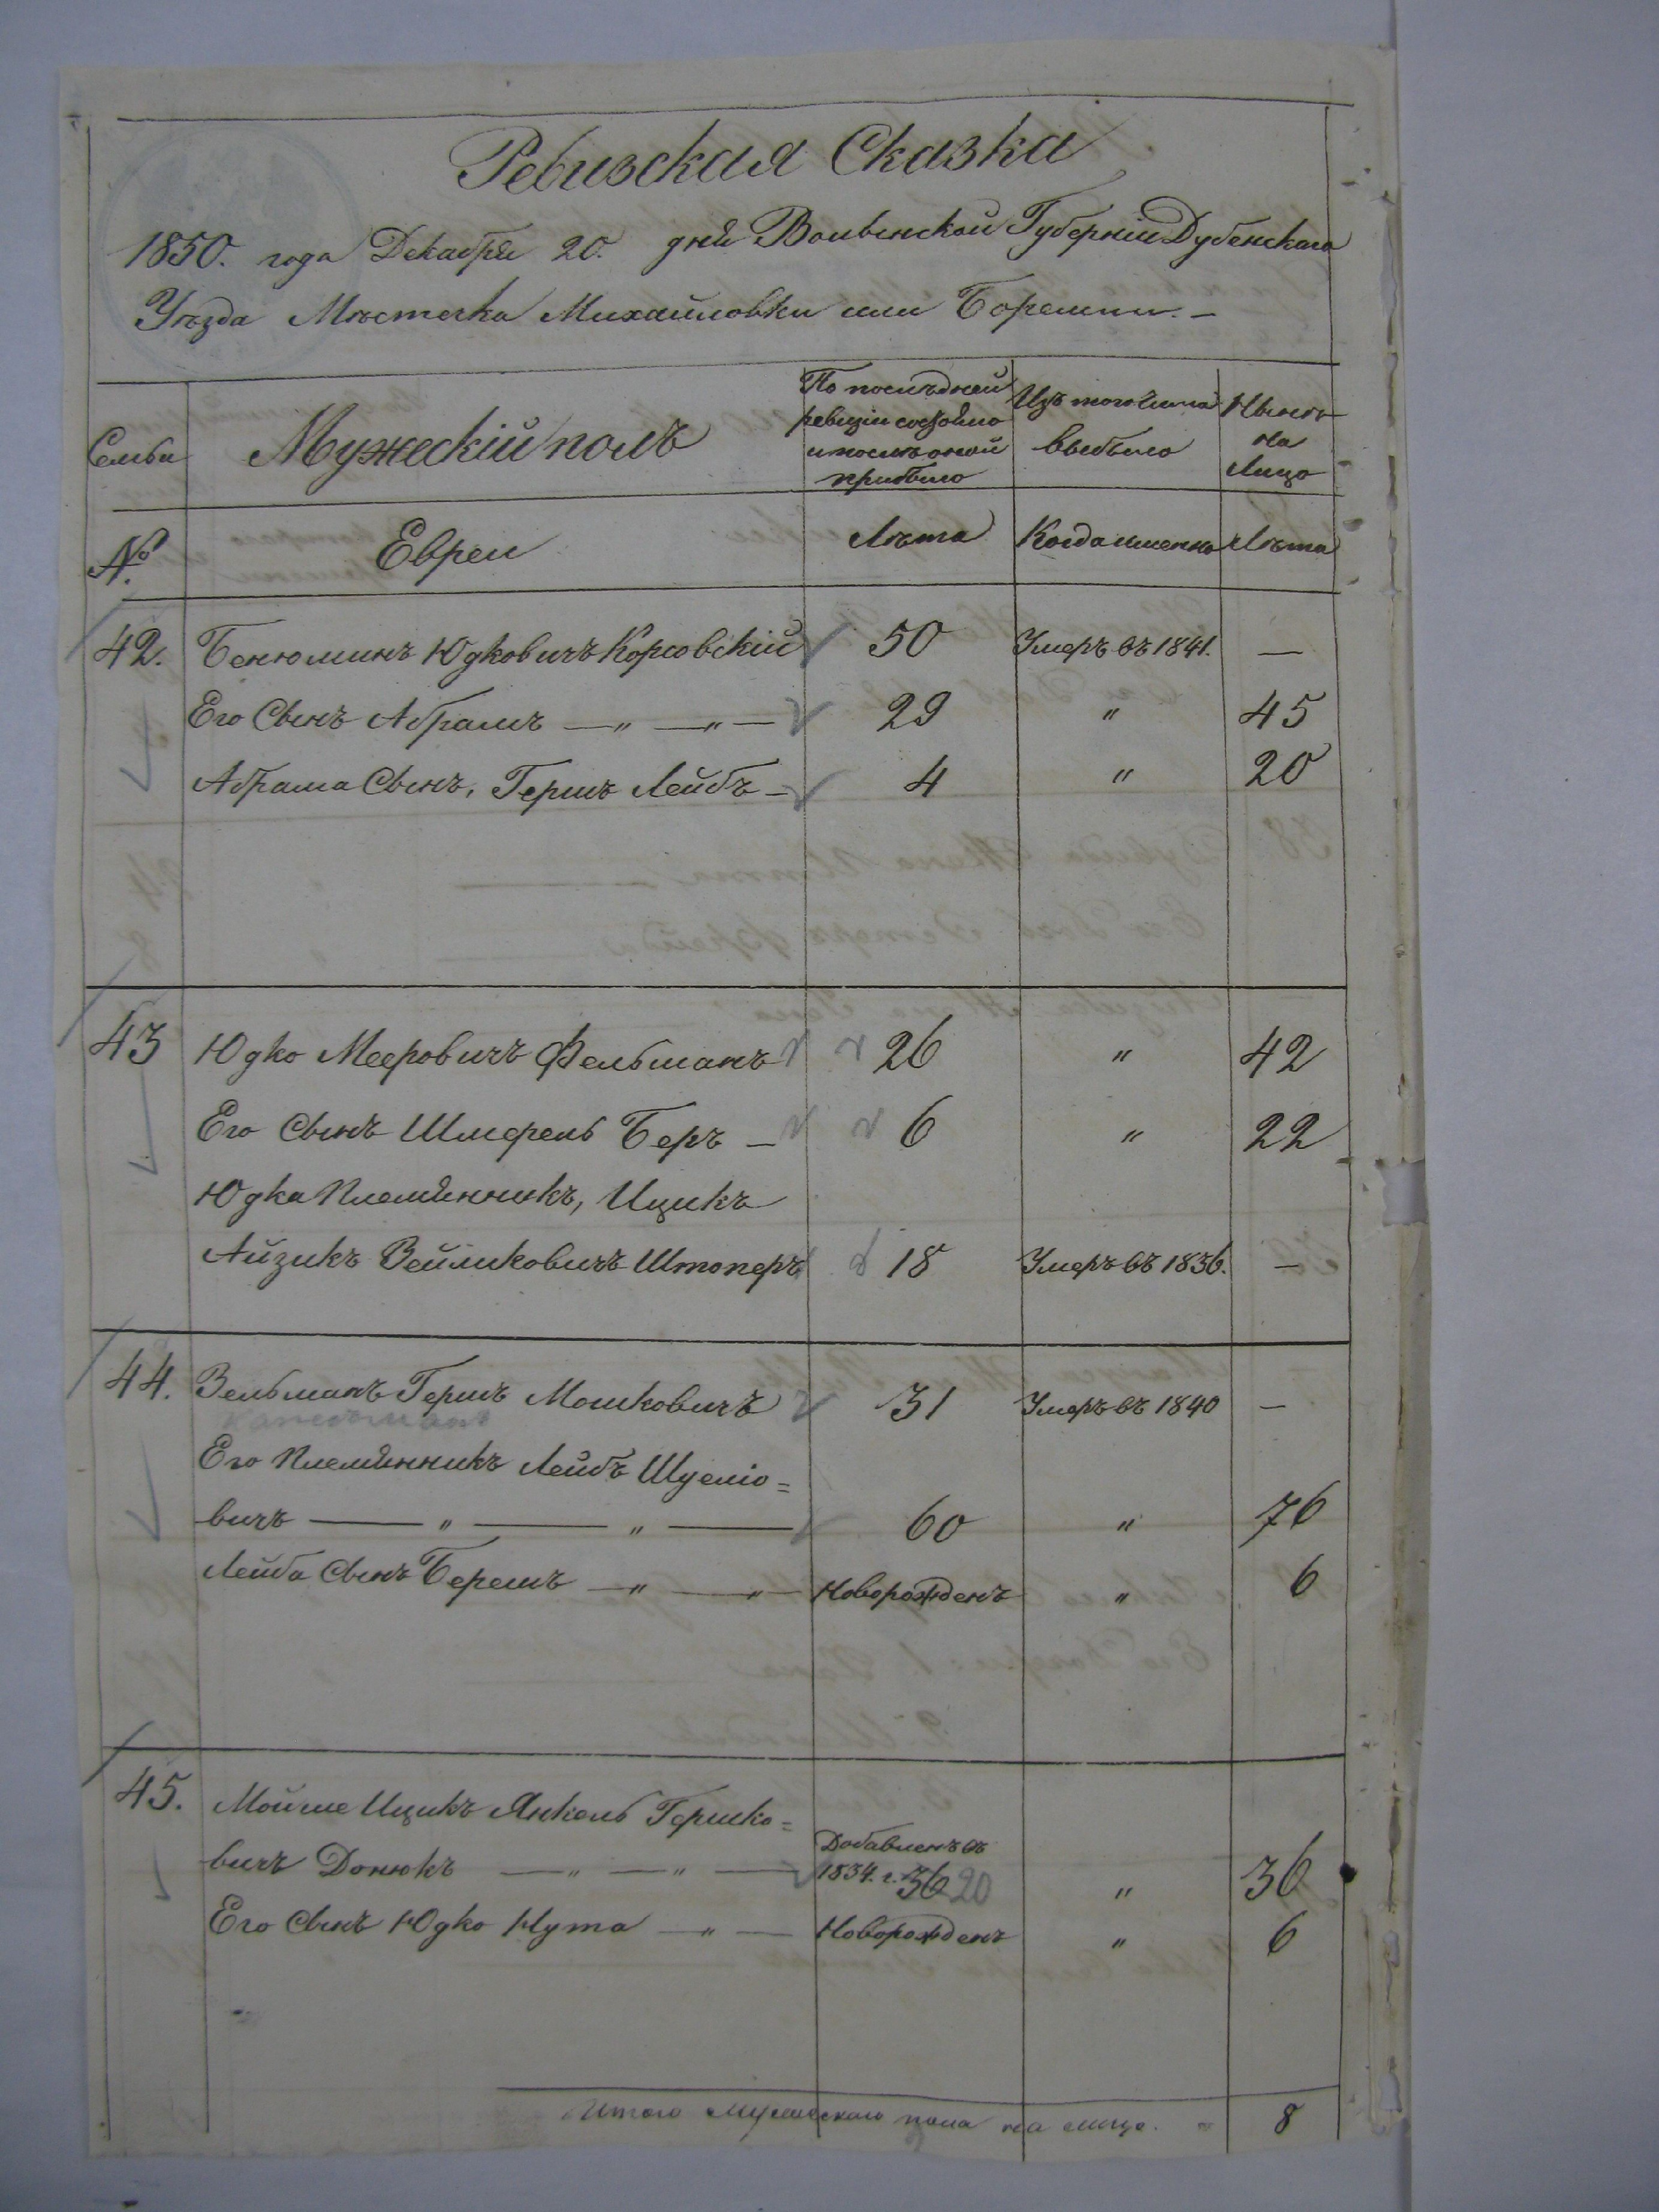 Ревизская Сказка
1850. года Декабря 20. дня Волынской Губерніи Дубенскаго
Уѣзда Мѣстечка Михайловки или Боремли. –
Семьи
Мужескій полъ
По послѣдней ревизіи состояло и послѣ оной прибыло
Изъ того числа выбыло
Нынѣ на Лицо
№
Евреи
Лѣта
Когда именно
Лѣта
42. Бенюминъ Юдковичъ Корсовскій 50 Умеръ въ 1841. —
Его Сынъ Абрамъ —„ —„— 29 „ 45
Абрама Сынъ, Гершъ Лейбъ — 4 „ 20
43 Юдко Мееровичъ Фельманъ 26 „ 42
Его Сынъ Шмерель Беръ — 6 „ 22
Юдка Племянникъ, Ицикъ
Айзикъ Зейликовичъ Штоперъ 18 Умеръ въ 1836. —
44. Зельманъ Гершъ Мошковичъ 31 Умеръ въ 1840 —
Его Племянникъ Лейбъ Шуеліо=
вичъ — „ — „ — 60 „ 76
Лейба Сынъ Берешъ —„ —„— Новорожденъ „ 6
45. Мойше Ицикъ Янкель Гершко=
вичъ Донюкъ —„—„— Добавленъ въ 1834. г. 36 20 „ 36
Его Сынъ Юдко Нута —„— Новорожденъ „ 6
Итого мужескаго пола на лицо. = 8